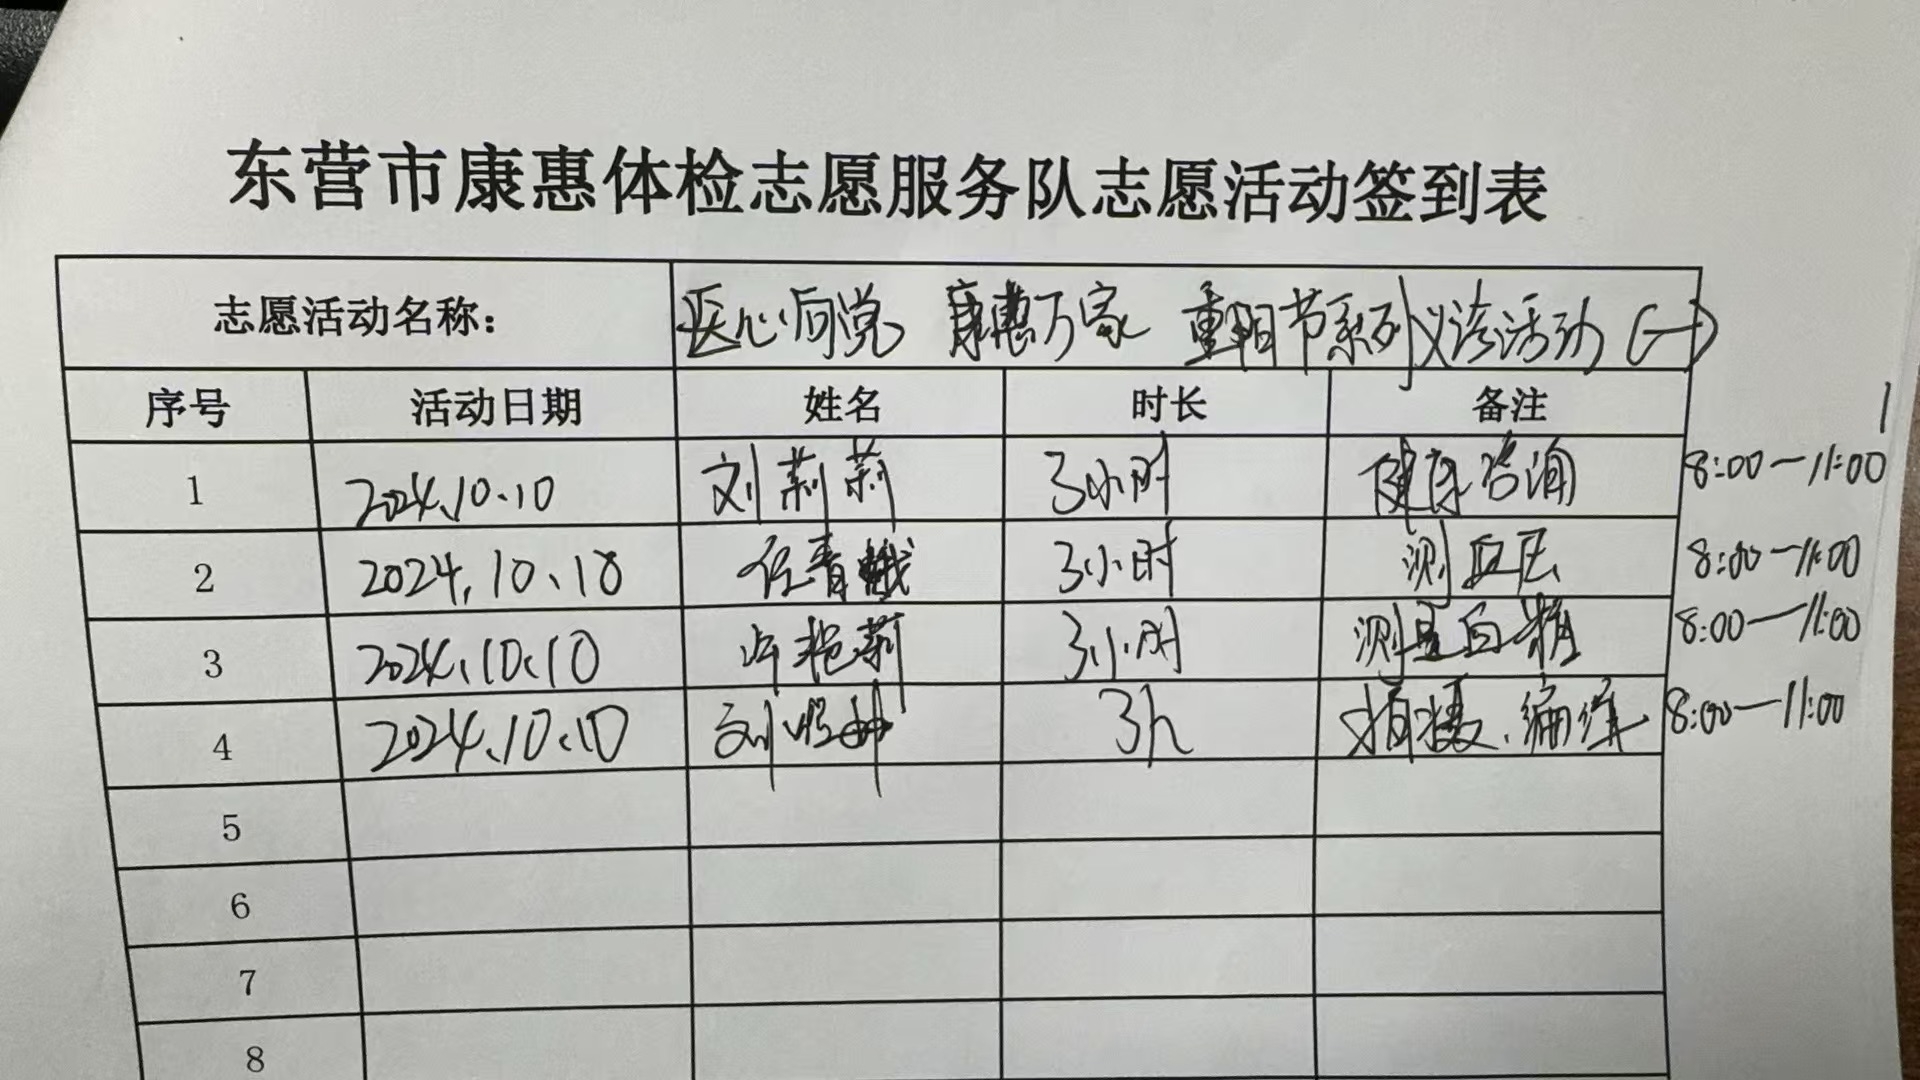 东营市康惠体检志愿服务队志愿活动签到表
志愿活动名称： 医心向党 康惠万家 重阳节系列义诊活动（一）
序号 活动日期 姓名 时长 备注
1 2024.10.10 刘莉莉 3小时 健康咨询 8:00—11:00
2 2024.10.10 任青 3小时 测血压 8:00—11:00
3 2024.10.10 许艳莉 3小时 测量血糖 8:00—11:00
4 2024.10.10 刘 3h 拍摄、编辑 8:00—11:00
5
6
7
8